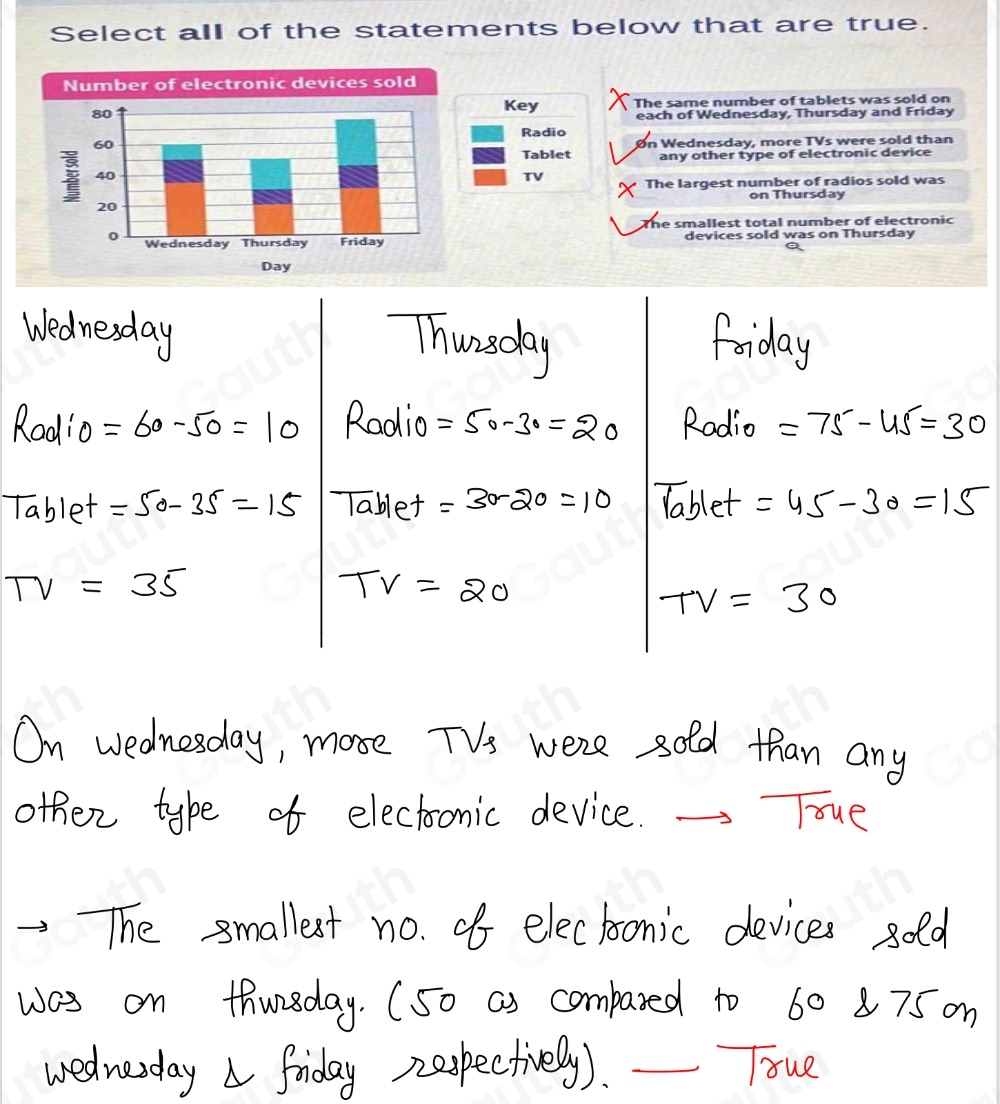 Select all of the statements below that are true.
Number of electronic devices sold
80
60
40
20
0
Number sold
Wednesday Thursday Friday
Day
Key
Radio
Tablet
TV
X The same number of tablets was sold on
each of Wednesday, Thursday and Friday
✓ On Wednesday, more TVs were sold than
any other type of electronic device
X The largest number of radios sold was
on Thursday
✓ The smallest total number of electronic
devices sold was on Thursday
Wednesday
Radio = 60 - 50 = 10
Tablet = 50 - 35 = 15
TV = 35
Thursday
Radio = 50 - 30 = 20
Tablet = 30 - 20 = 10
TV = 20
friday
Radio = 75 - 45 = 30
Tablet = 45 - 30 = 15
TV = 30
On wednesday, more TVs were sold than any
other type of electronic device. → True
→ The smallest no. of electronic devices sold
was on thursday. (50 as compared to 60 & 75 on
wednesday & friday respectively). — True
Gauth